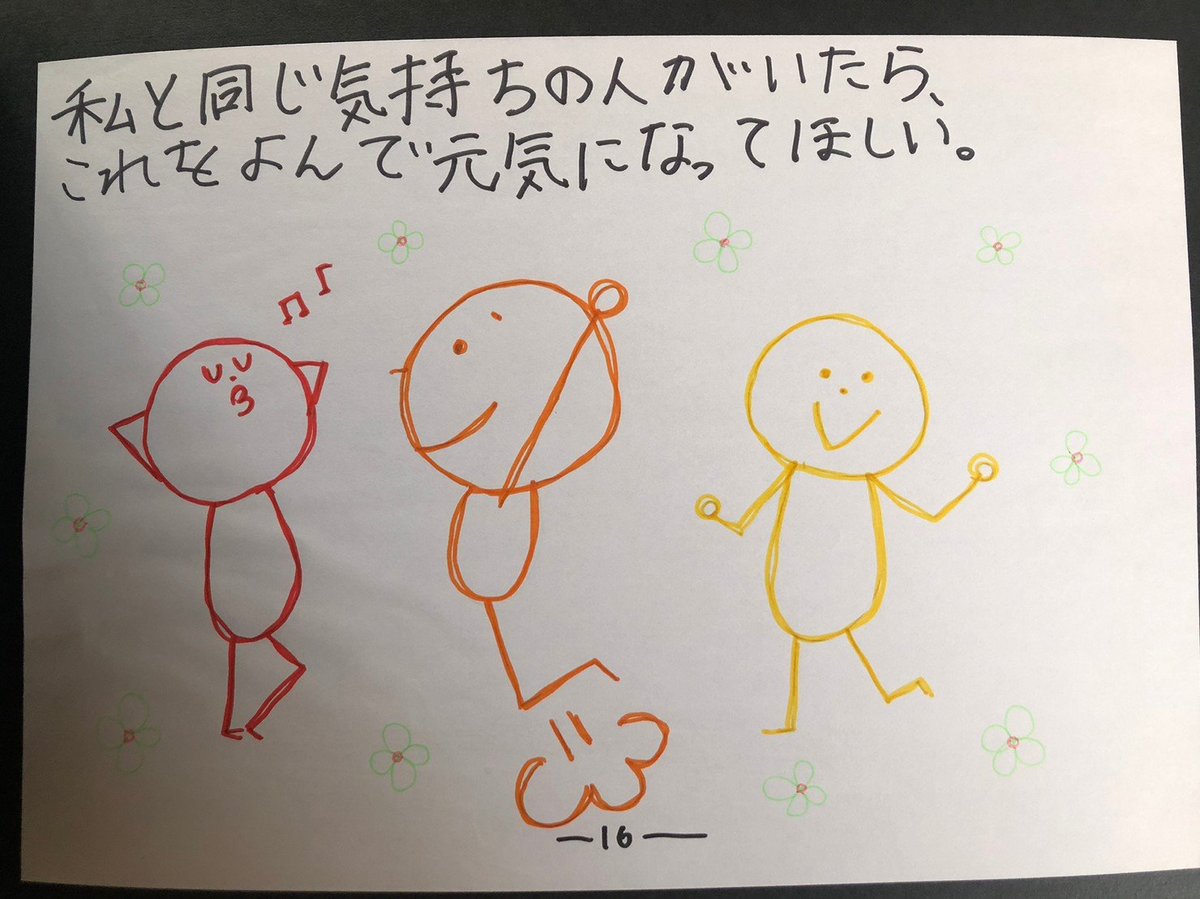 私と同じ気持ちの人がいたら、
これをよんで元気になってほしい。
—16—